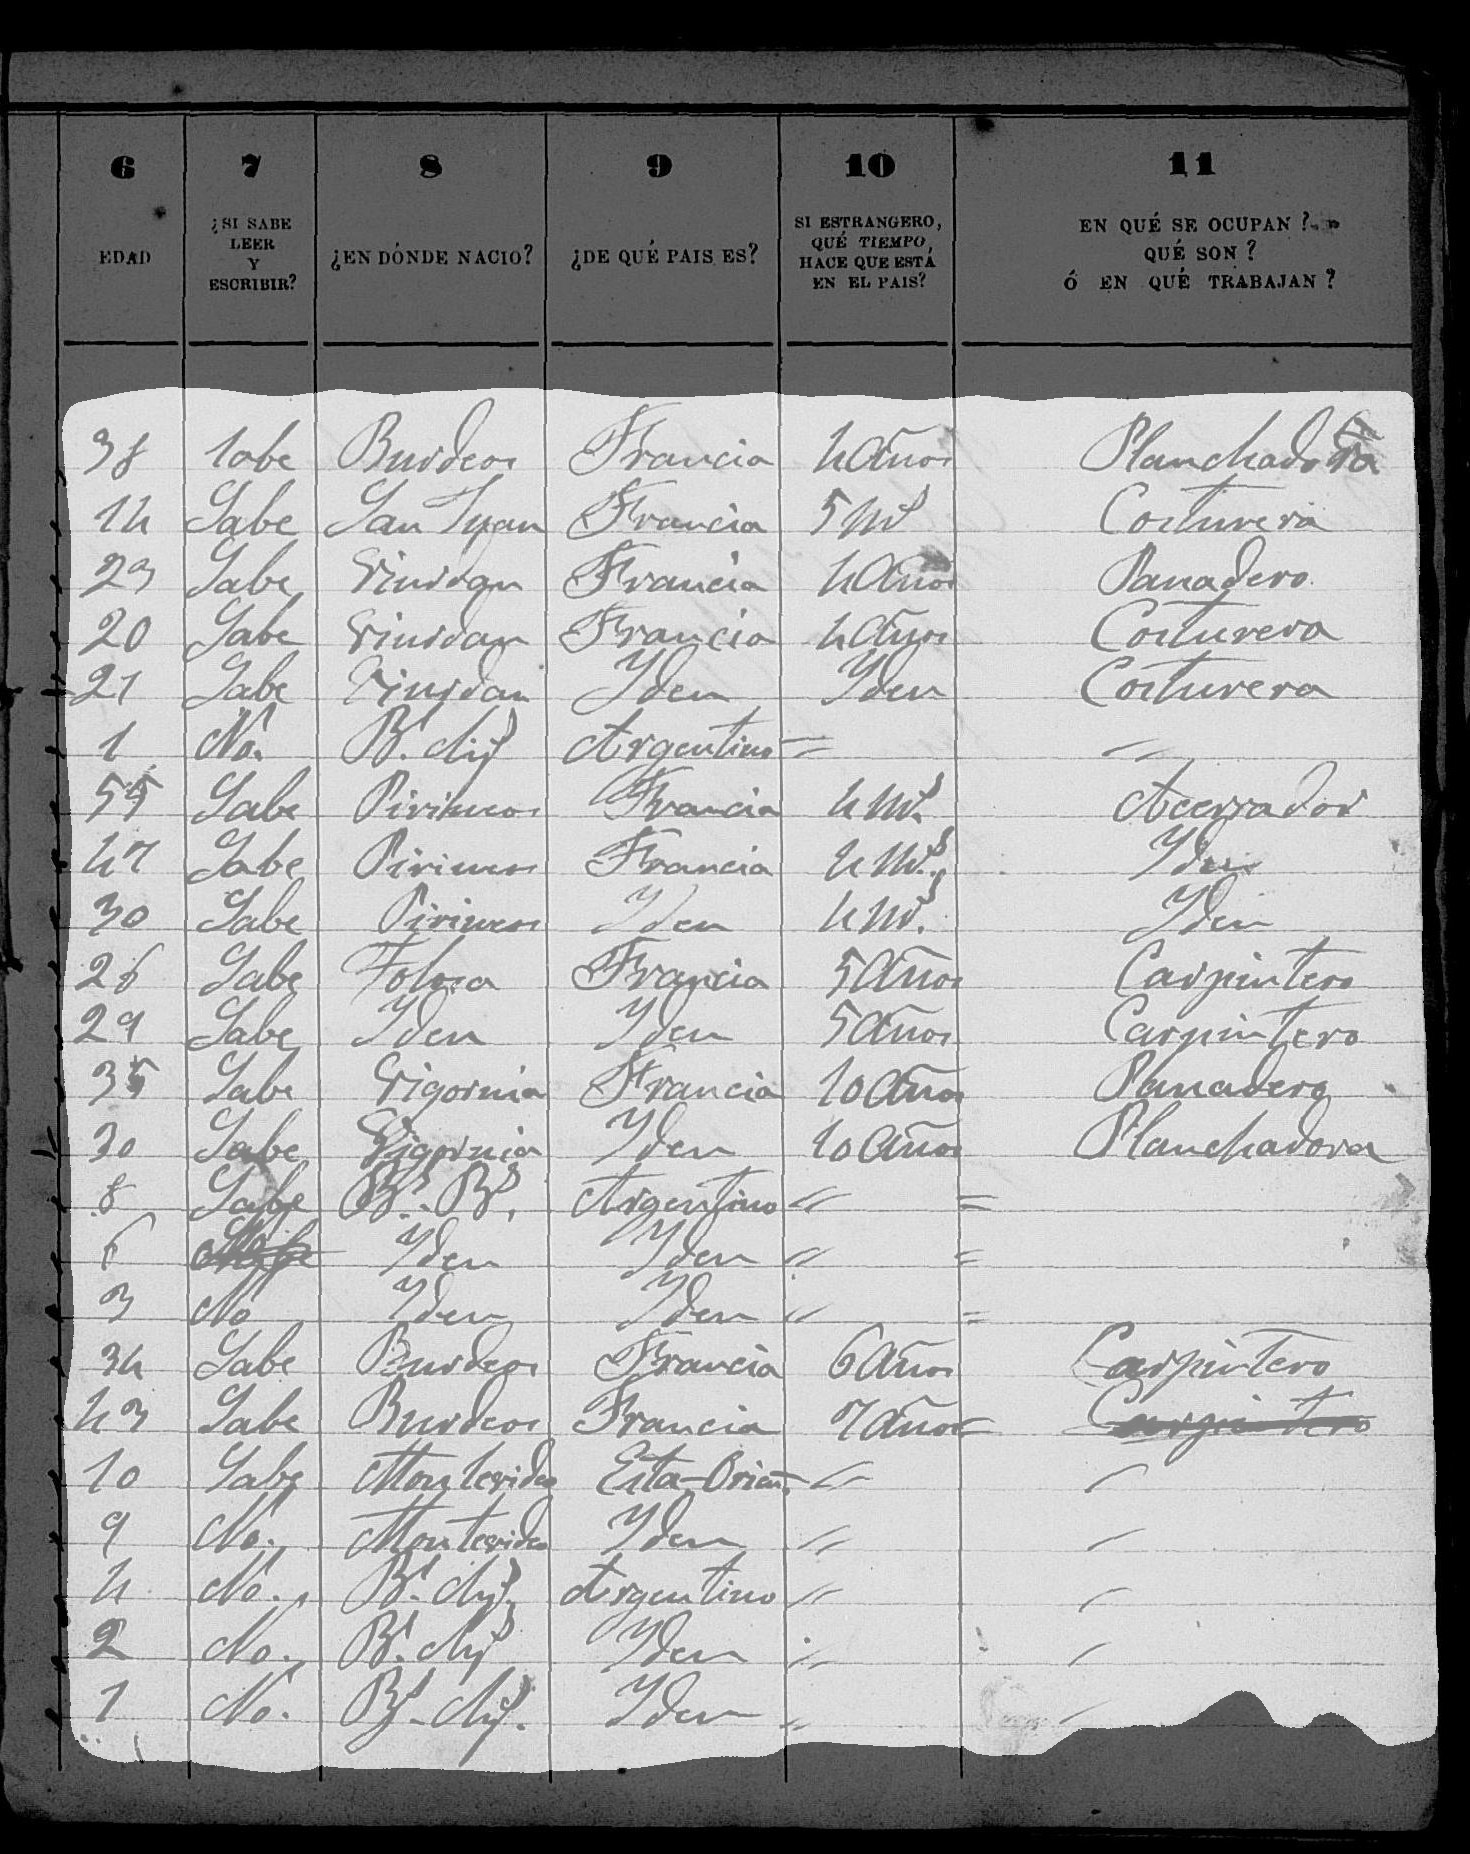 6 7 8 9 10 11
EDAD ¿SI SABE LEER Y ESCRIBIR? ¿EN DÓNDE NACIO? ¿DE QUÉ PAIS ES? SI ESTRANGERO, QUÉ TIEMPO, HACE QUE ESTÁ EN EL PAIS? EN QUÉ SE OCUPAN? QUÉ SON? Ó EN QUÉ TRABAJAN?
38 Sabe Burdeos Francia 4 Años Planchadora
14 Sabe San Juan Francia 5 Costurera
23 Sabe Francia 4 Años Panadero
20 Sabe Francia 4 Años Costurera
21 Sabe Yden Yden Costurera
1 No. Bs. Ays Argentino = "
55 Sabe Pirineos Francia 4 Acerrador
47 Sabe Pirineos Francia 4 Yden
30 Sabe Pirineos Yden 4 Yden
26 Sabe Tolosa Francia 5 Años Carpintero
29 Sabe Yden Yden 5 Años Carpintero
35 Sabe Francia 10 Años Panadero
30 Sabe Yden 10 Años Planchadora
8 Sabe Argentino " =
6 Yden Yden " =
3 No Yden Yden " =
34 Sabe Burdeos Francia 6 Años Carpintero
43 Sabe Burdeos Francia 7 Años = Carpintero
10 Sabe Montevideo "
9 No. Montevideo Yden "
4 No. Bs. Ays. Argentino "
2 No. Bs. Ays Yden "
1 No. Bs. Ays. Yden "